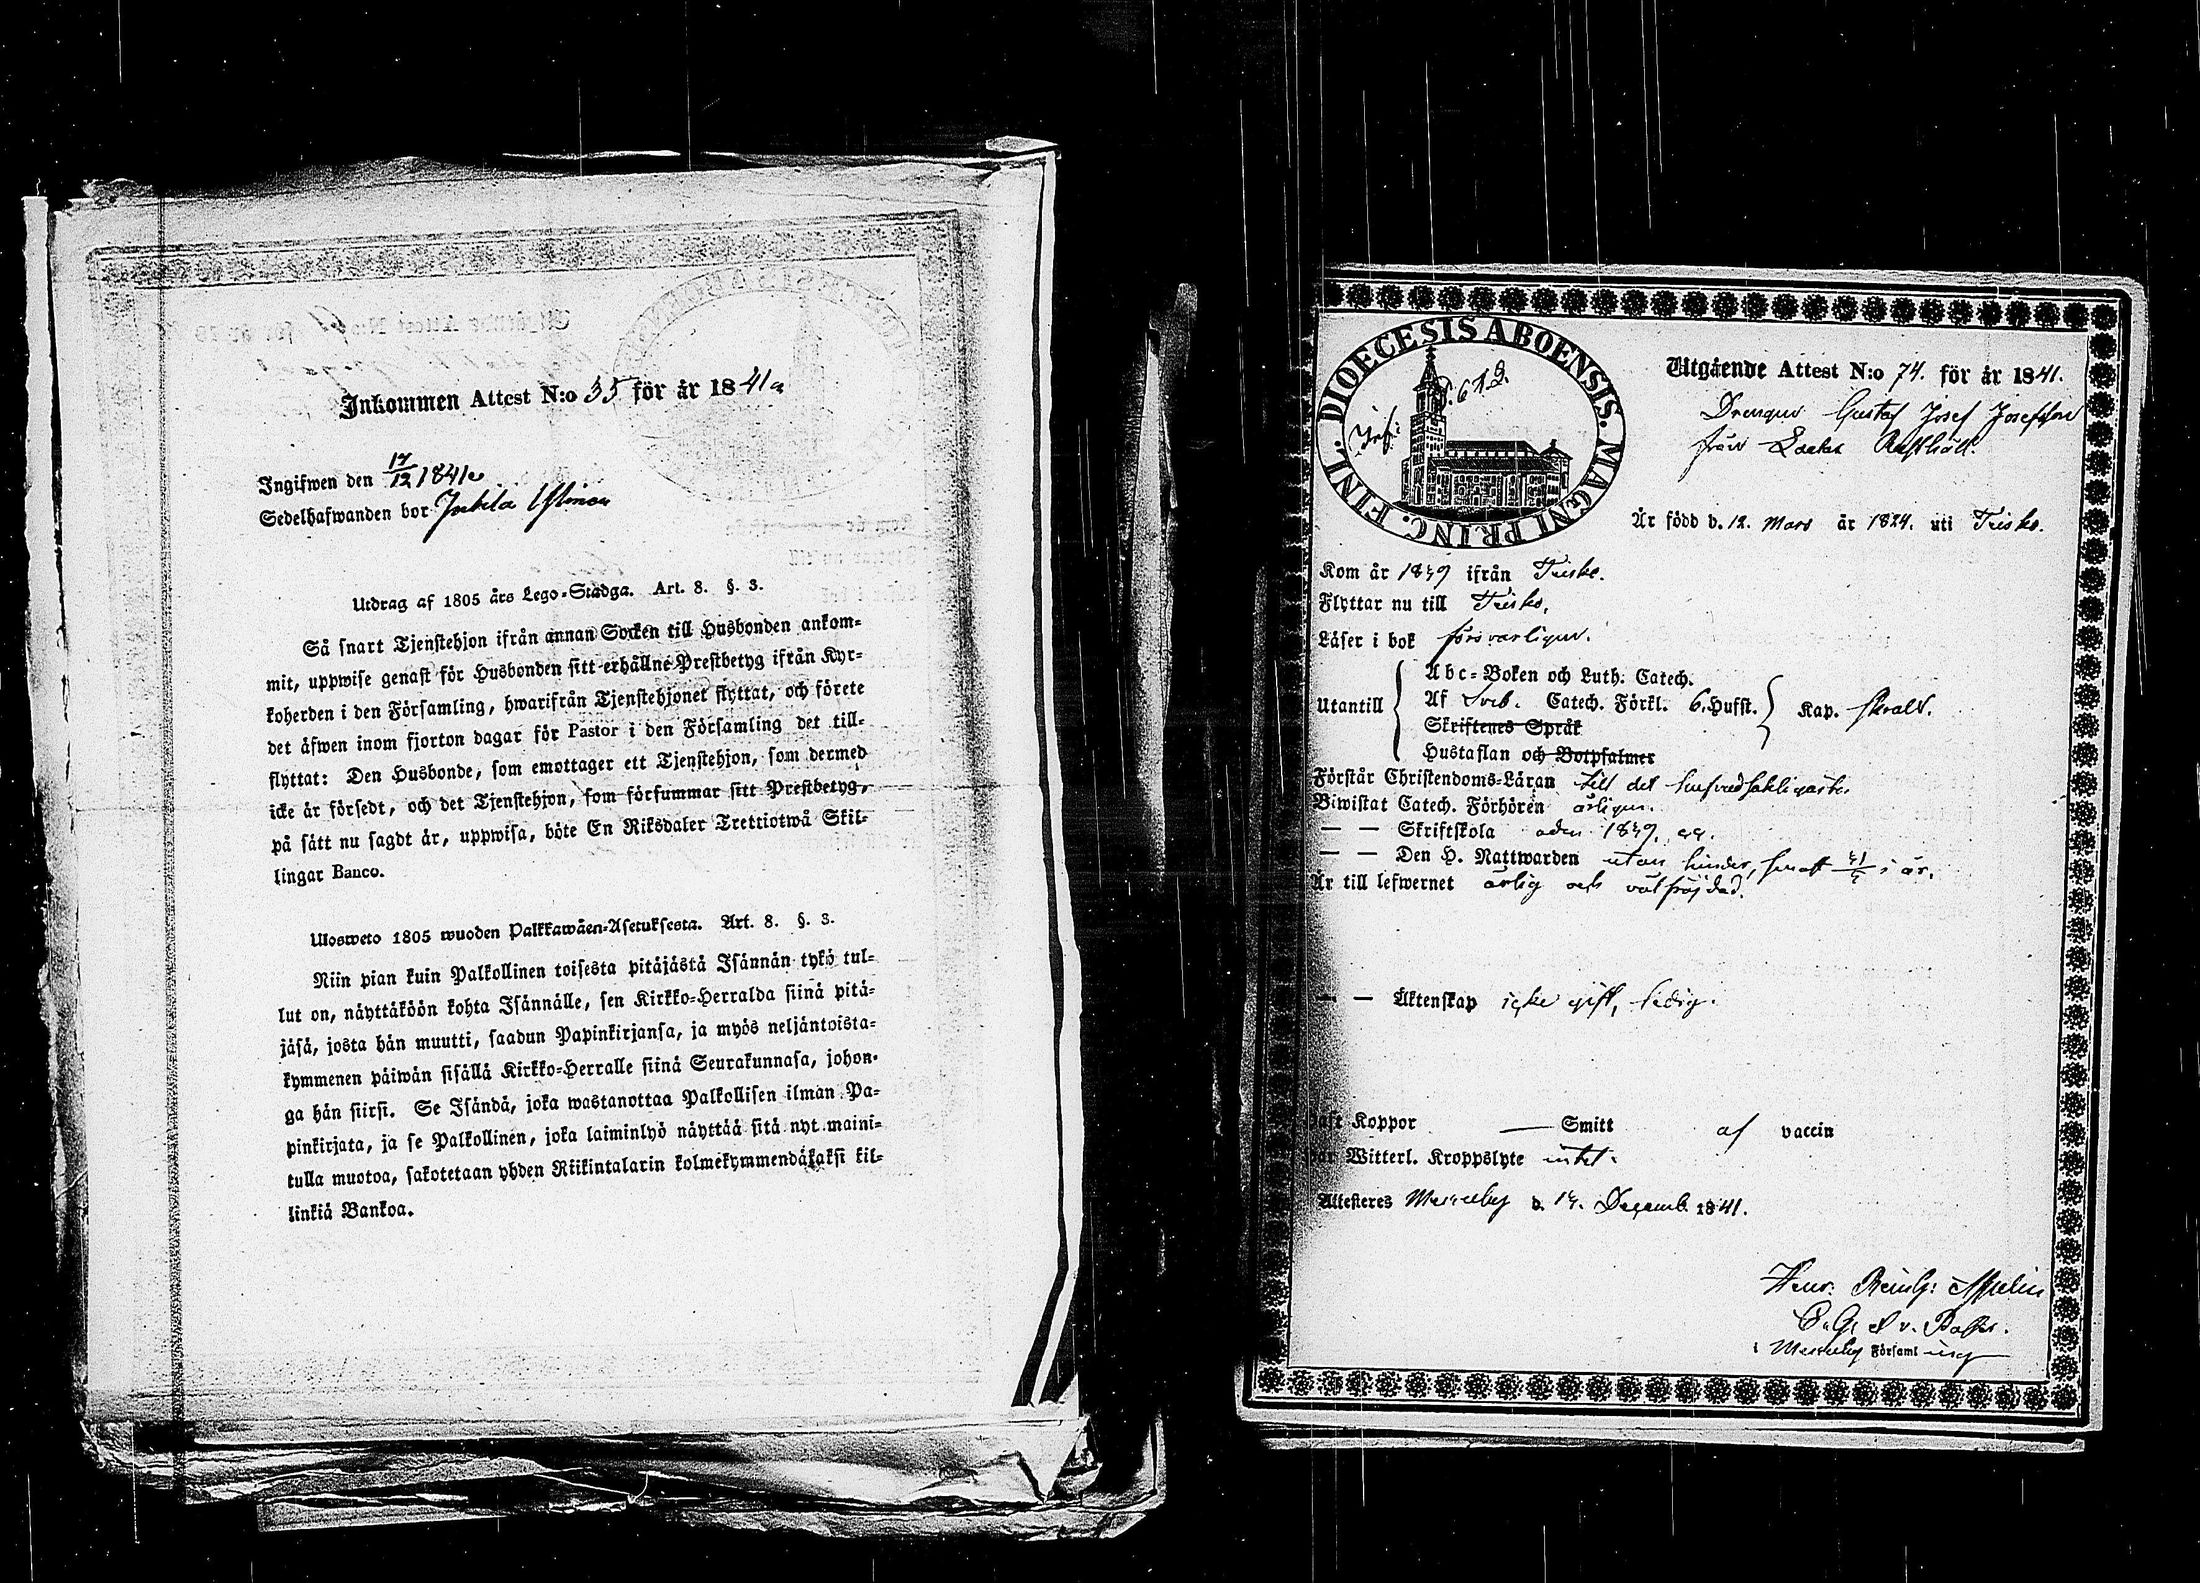 Inkommen Attest N:o 35 för år 1841
Ingifwen den 17/12 1841
Sedelhafwanden bor
Utdrag af 1805 års Lego-Stadga. Art. 8. §. 3.
Så snart Tjenstehjon ifrån annan Socken till Husbonden ankom-
mit, uppwise genast för Husbonden sitt erhållne Prestbetyg ifrån Kyr-
koherden i den Församling, hwarifrån Tjenstehjonet flyttat, och förete
det äfwen inom fjorton dagar för Pastor i den Församling det till-
flyttat: Den Husbonde, som emottager ett Tjenstehjon, som dermed
icke är försedt, och det Tjenstehjon, som försummar sitt Prestbetyg,
på sätt nu sagdt är, uppwisa, böte En Riksdaler Trettiotwå Skil-
lingar Banco.
Ulosweto 1805 wuoden Palkkawäen-Asetuksesta. Art. 8. §. 3.
Niin pian kuin Palkollinen toisesta pitäjästä Isännän tykö tul-
lut on, näyttäköön kohta Isännälle, sen Kirkko-Herralda siinä pitä-
jäsä, josta hän muutti, saadun Papinkirjansa, ja myös neljäntoista-
kymmenen päiwän sisällä Kirkko-Herralle siinä Seurakunnasa, johon-
ga hän siirsi. Se Isändä, joka wastanottaa Palkollisen ilman Pa-
pinkirjata, ja se Palkollinen, joka laiminlyö näyttää sitä nyt maini-
tulla muotoa, sakotetaan yhden Riikintalarin kolmekymmendäkaksi kil-
linkiä Bankoa.
DIOECESIS ABOENSIS. MAGNI PRINC. FINL.
Utgående Attest N:o 74. för år 1841.
Drengen Gustaf Josef Josefsson
från
Är född d. 12. Mars år 1824. uti Tensko.
Kom år 1839 ifrån
Flyttar nu till
Läser i bok försvarligen.
Utantill
Abc-Boken och Luth. Catech.
Af Sveb. Catech. Förkl. 6. Hufst. Kap.
Skriftenes Språk
Hustaflan och Botpsalmer
Förstår Christendoms-Läran till det
Biwistat Catech. Förhören årligen.
— — Skriftskola åren 1839,
— — Den H. Nattwarden utan hinder, senast i år.
Är till lefwernet ärlig och välfräjdad.
— — Äktenskap icke gift, ledig.
haft Koppor — Smitt af vaccin
har Witterl. Kroppslyte intet.
Attesteres d. 14. Decemb. 1841.
Henr.
i Församling